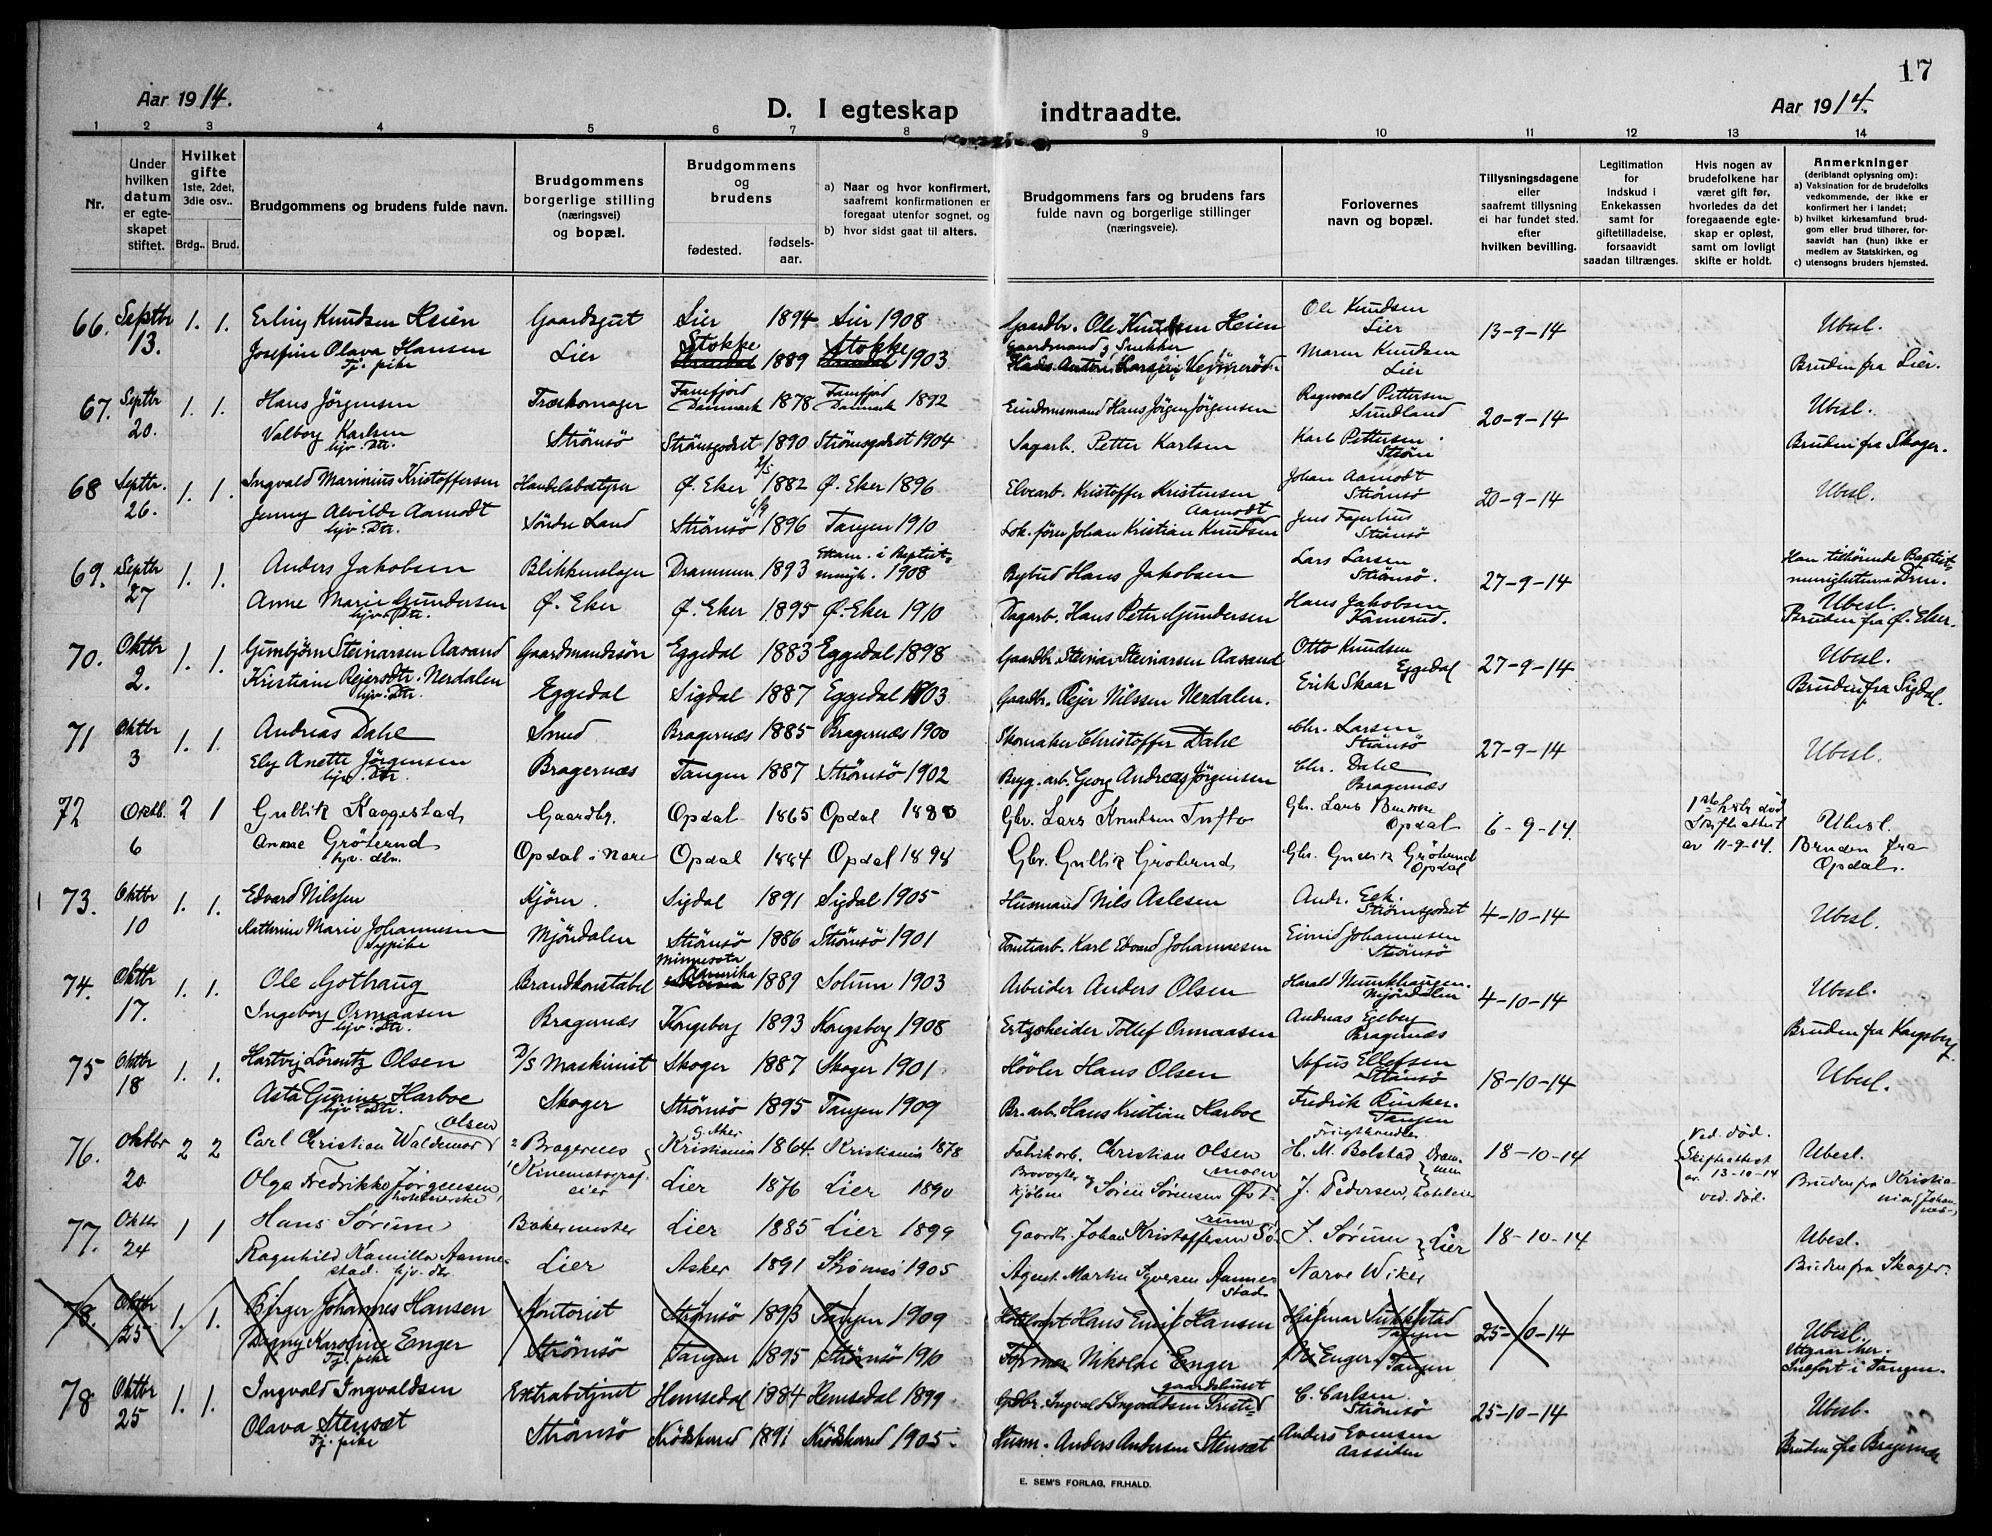 17
Aar 1914.
D. I egteskap indtraadte.
Aar 1914.
1 2 3 4 5 6 7 8 9 10 11 12 13 14
Nr.
Under hvilken datum er egteskapet stiftet.
Hvilket gifte 1ste, 2det, 3die osv..
Brdg.. Brud.
Brudgommens og brudens fulde navn.
Brudgommens borgerlige stilling (næringsvei) og bopæl.
Brudgommens og brudens
fødested. fødselsaar.
a) Naar og hvor konfirmert, saafremt konfirmationen er foregaat utenfor sognet, og
b) hvor sidst gaat til alters.
Brudgommens fars og brudens fars fulde navn og borgerlige stillinger (næringsveie).
Forlovernes navn og bopæl.
Tillysningsdagene eller saafremt tillysning ei har fundet sted. efter hvilken bevilling.
Legitimation for Indskud i Enkekassen samt for giftetilladelse, forsaavidt saadan tiltrænges.
Hvis nogen av brudefolkene har været gift før, hvorledes da det foregaaende egteskap er opløst, samt om lovligt skifte er holdt.
Anmerkninger (deriblandt oplysning om):
a) Vaksination for de brudefolks vedkommende, der ikke er konfirmert her i landet;
b) hvilket kirkesamfund brudgom eller brud tilhører, forsaavidt han (hun) ikke er medlem av Statskirken, og
c) utensogns bruders hjemsted.
66. Septbr 13. 1. 1. Erling Knudsen Heien Gaardsgut Lier 1894 Lier 1908 Gaardbr. Ole Knudsen Heien Ole Knudsen Lier 13-9-14 Ubesl.
Josefine Olava Hansen Tj. pike Lier Stokke 1889 Stokke 1903 Gaardmand og Snekker Hans Anton Maren Knudsen Lier Bruden fra Lier.
67. Septbr 20. 1. 1. Hans Jörgensen Træskomager Danmark 1878 Danmark 1892 Eiendomsmand Hans Jörgen Jörgensen Ragnvald Pettersen Sundland 20-9-14 Ubesl.
Valborg Karlsen hjv. Dtr. Strömsö Strömsgodset 1890 Strömsgodset 1904 Sagarb. Petter Karlsen Karl Pettersen Ström Bruden fra Skoger.
68 Septbr. 26. 1. 1. Ingvald Marinius Kristoffersen Handelsbestyrer Ø. Eker 2/5 1882 Ø. Eker 1896 Elvearb. Kristoffer Kristensen Johan Aamodt Strömsö 20-9-14 Ubesl.
Jenny Alvilde Aamodt hjv. Dtr. Söndre Land Strömsö 6/9 1896 Tangen 1910 Lok. förer Johan Kristian Knudsen Aamodt Jens Strömsö
69. Septbr 27 1. 1. Anders Jakobsen Blikkenslager Drammen 1893 i Baptist menigh. 1908 Bybud Hans Jakobsen Lars Larsen Strömsö. 27-9-14 Han tilhörende Baptistmenigheten i Drm. Ubesl.
Anne Marie Gundersen hjv. Dtr. Ø. Eker Ø. Eker 1895 Ø. Eker 1910 Dagarb. Hans Peter Gundersen Hans Jakobsen Kamerud. Bruden fra Ø. Eker.
70. Oktbr 2. 1. 1. Gunbjörn Steinarsen Aasand Gaardmandssön Eggedal 1883 Eggedal 1898 Gaardbr. Steinar Steinarsen Aasand Otto Knudsen Eggedal 27-9-14 Ubesl.
Kristiane Reiersdtr. Nerdalen hjv. Dtr. Eggedal Sigdal 1887 Eggedal 1903 Gaardbr. Reier Nilssen Nerdalen. Erik Skaar Bruden fra Sigdal.
71 Oktbr 3 1. 1. Andreas Dahl Smed Bragernæs 1885 Bragernæs 1900 Skomaker Christoffer Dahl Chr. Larsen Strömsö 27-9-14 Ubesl.
Ely Anette Jörgensen hjv. Dtr. Bragernæs Tangen 1887 Strömsö 1902 Bryg. arb. Georg Andreas Jörgensen Chr. Dahl Bragernæs
72 Oktb. 6 2 1 Gullik Kaggestad Gaardbr. Opdal 1865 Opdal 1880 Gbr. Lars Knutsen Tufto Gbr. Lars Opdal 6-9-14 1ste död Skifteattest av 11-9-14. Ubesl.
Anne Gröterud hjv. dtr. Opdal i Nore Opdal 1884 Opdal 1898 Gbr. Gullik Gröterud Gbr. Gullik Gröterud Opdal Bruden fra Opdal.
73. Oktbr 10 1. 1. Edvard Nilssen Kjörer. Sigdal 1891 Sigdal 1905 Husmand Nils Aslesen Andr. Eek. Strömsgodset 4-10-14 Ubesl.
Kathrine Marie Johannesen Sypike Mjöndalen Strömsö 1886 Strömsö 1901 Tomtarb. Karl Edvard Johannesen Eivind Johannesen Strömsö
74. Oktbr 17. 1. 1. Ole Gothaug Brandkonstabel Minnesota Amerika 1889 Solum 1903 Arbeider Anders Olsen Harald Munkhaugen. Mjöndalen 4-10-14 Ubesl.
Ingeborg Ormaasen hjv. Dtr. Bragernæs Kongsberg 1893 Kongsberg 1908 Ertzscheider Tollef Ormaasen Andreas Egeberg Bragernæs Bruden fra Kongsberg
75 Oktbr 18 1. 1. Hartvig Lorentz Olsen D/S Maskinist Skoger 1887 Skoger 1901 Hövler Hans Olsen Sofus Ellefsen Strömsö 18-10-14 Ubesl.
Asta Gurine Harboe hjv. Dtr. Skoger Strömsö 1895 Tangen 1909 Br. arb. Hans Kristian Harboe Fredrik Rinker. Tangen
76. Oktbr 20 2 2 Carl Christian Waldemar Olsen Bragernes Kinematografeier G. Aker Kristiania 1864 Kristiania 1878 Fabrikarb. Christian Olsen Frugthandler H. M. Bolstad Drammen 18-10-14 Ved död. Skifteattest av. 13-10-14 ved. död. Ubesl.
Olga Fredrikke Jörgensen, hotelvertske Lier 1876 Lier 1890 Brovogter og Sören Sörensen J. Pedersen, Bruden fra Kristiania, Johannes
77. Oktbr 24 1 1 Hans Sörum Bakermester Lier 1885 Lier 1899 Gaardbr. Johan Kristoffersen Sörum J. Sörum Lier 18-10-14 Ubesl.
Ragnhild Kamilla Aannestad. hjv. dtr Lier Asker 1891 Strömsö 1905 Agent Martin Syversen Aannestad Narve Wiker Bruden fra Skoger.
78. Oktbr 25 1. 1. Birger Johannes Hansen Kontorist Strömsö 1893 Tangen 1909 Hans Emil Hansen Hjalmar Tangen 25-10-14 Ubesl. Utgaar her. Indfört i Tangen.
Dagny Karoline Enger Tj. pike Strömsö Tangen 1895 Strömsö 1910 Former Nikolai Enger Enger, Tangen
78 Oktbr 25 1. 1. Ingvald Ingvaldsen Extrabetjent Hemsedal 1884 Hemsedal 1899 Gdbr. Ingvald Ingvaldsen gaardshuset C. Carlsen. Strömsö 25-10-14 Ubesl.
Olava Stensæt Tj. pike Strömsö Krödsherred 1891 Krödsherred 1905. Husm. Anders Andersen Stensæt Anders Evensen Aassiden Bruden fra Bragernæs
E. SEM'S FORLAG, FR.HALD.